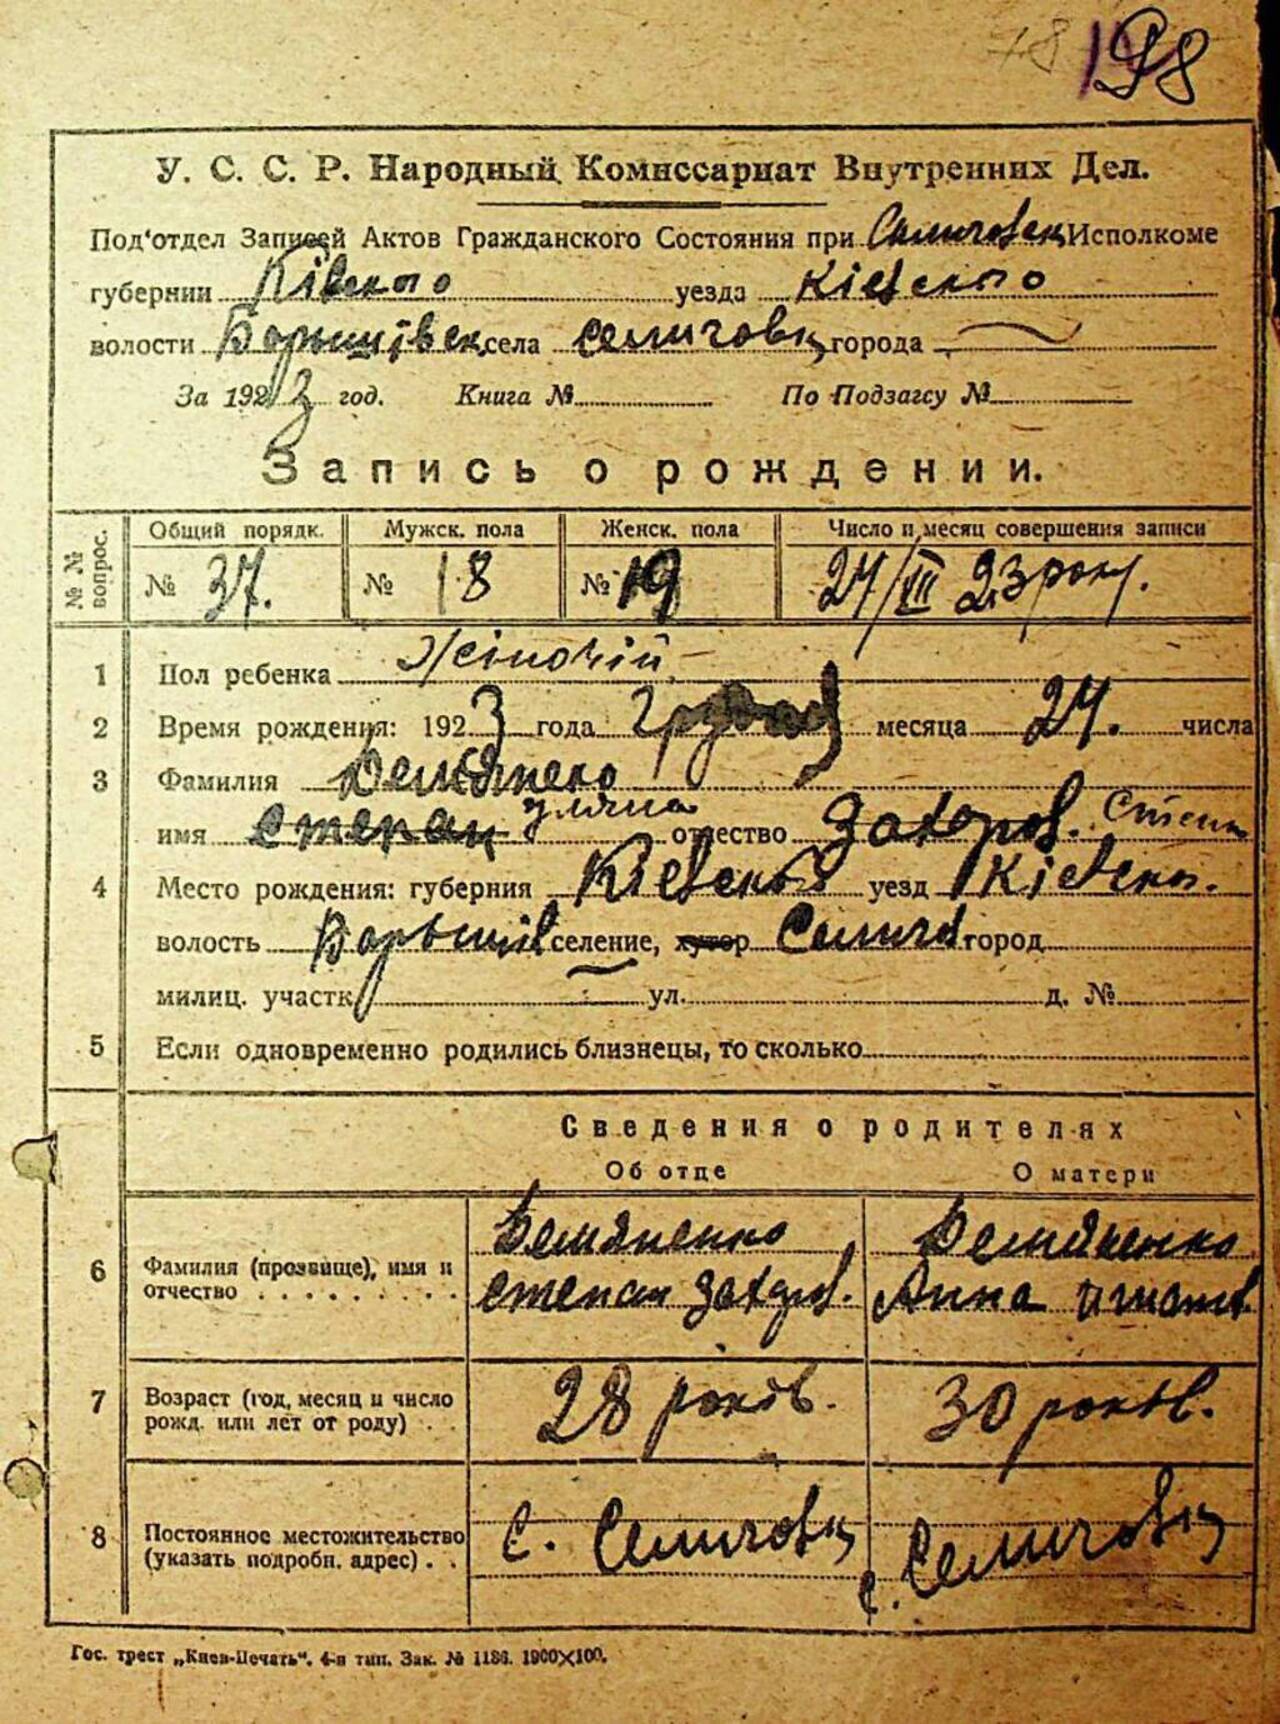 78 198
У. С. С. Р. Народный Комиссариат Внутренних Дел.
Под'отдел Записей Актов Гражданского Состояния при Селичовец Исполкоме
губернии Київского уезда Кіевского
волости Боришівск села Селичовк города
За 1923 год. Книга № По Подзагсу №
Запись о рождении.
№№ вопрос. Общий порядк. Мужск. пола Женск. пола Число и месяц совершения записи
№ 37. № 18 № 19 24/XII 23 року.
1 Пол ребенка Жіночій
2 Время рождения: 1923 года Грудня месяца 24. числа
3 Фамилия Демяненко
имя Степан Уляна отчество Захаров. Степ
4 Место рождения: губерния Кіевской уезд Кіевск.
волость Боришів селение, хутор Селичов город
милиц. участк ул. д. №
5 Если одновременно родились близнецы, то сколько
Сведения о родителях
Об отце О матери
Демяненко Демяненко
6 Фамилия (прозвище), имя и
отчество . . . . . . . . . Степан Захаров. Анна Игнатов
7 Возраст (год, месяц и число
рожд. или лет от роду) . . 28 років. 30 років.
8 Постоянное местожительство
(указать подробн. адрес) . . с. Селичовк с. Селичовк
Гос. трест „Киев-Печать“. 4-я тип. Зак. № 1186. 1900×100.